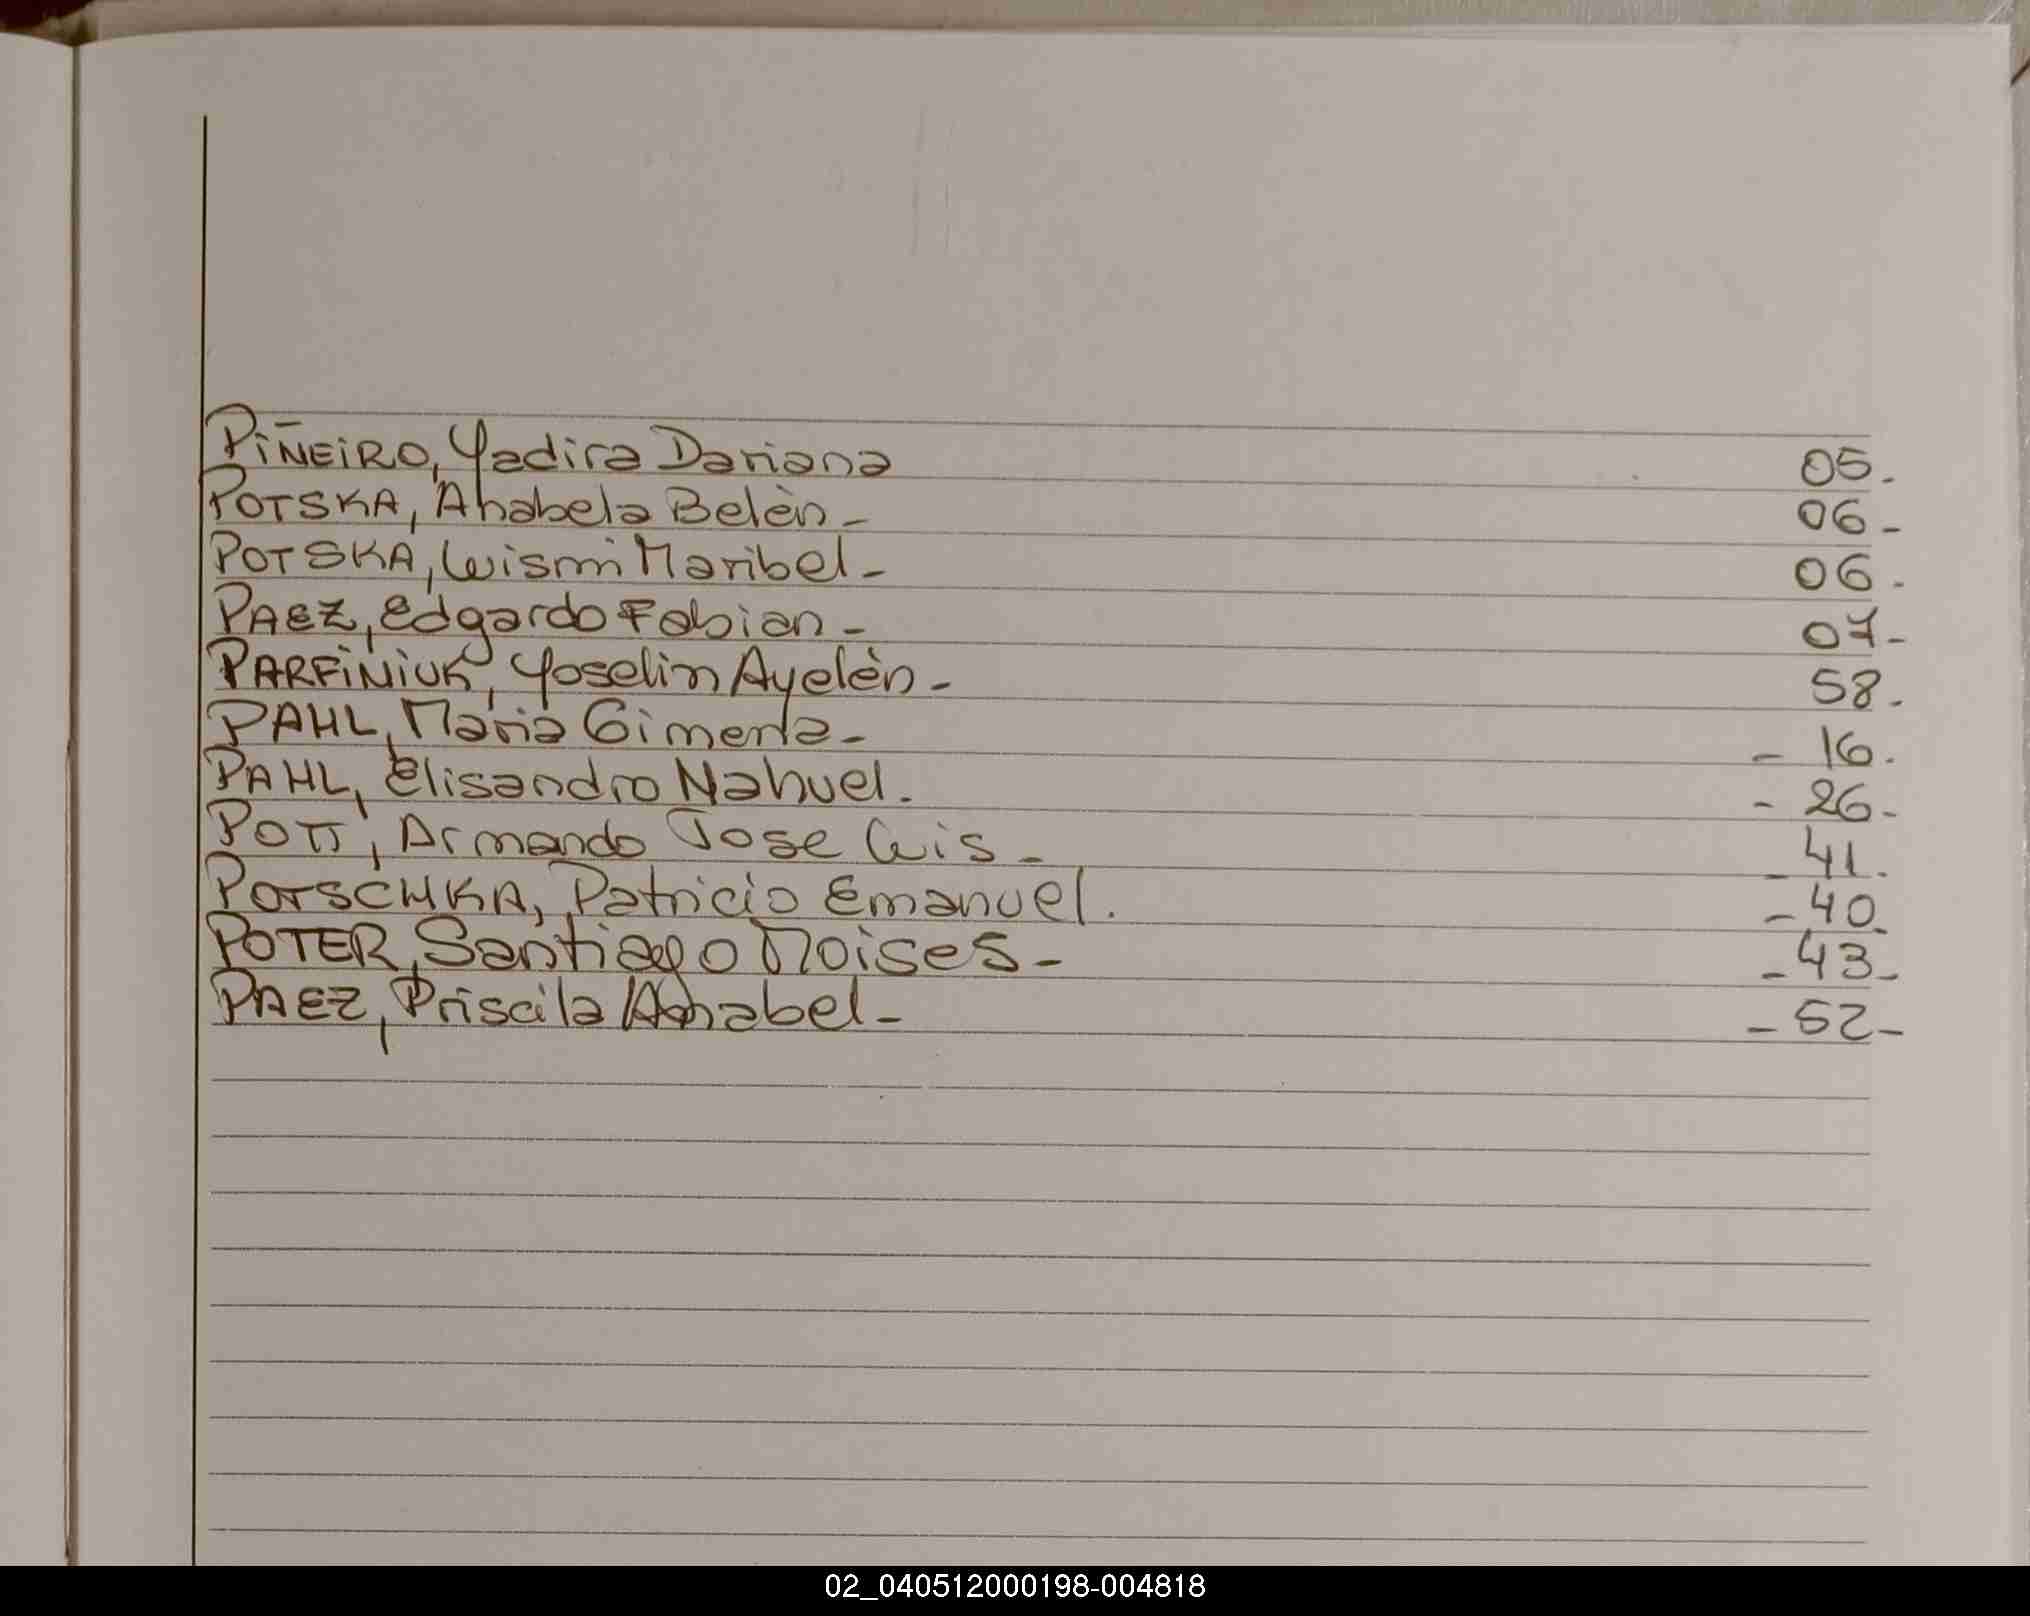 PIÑEIRO, Yadira Dariana 05.
POTSKA, Anabela Belèn - 06 -
POTSKA, Luismi Maribel - 06 .
PAEZ, Edgardo Fabian - 07 -
PARFINIUK, Yoselin Ayelèn - 58 .
PAHL, Maria Gimena - - 16.
PAHL, Elisandro Nahuel. - 26 -
POTT, Armando Jose Luis - - 41.
POTSCHKA, Patricio Emanuel. - 40.
POTER, Santiago Moises - - 43 -
PAEZ, Priscila Anabel - - 52 -
02_040512000198-004818